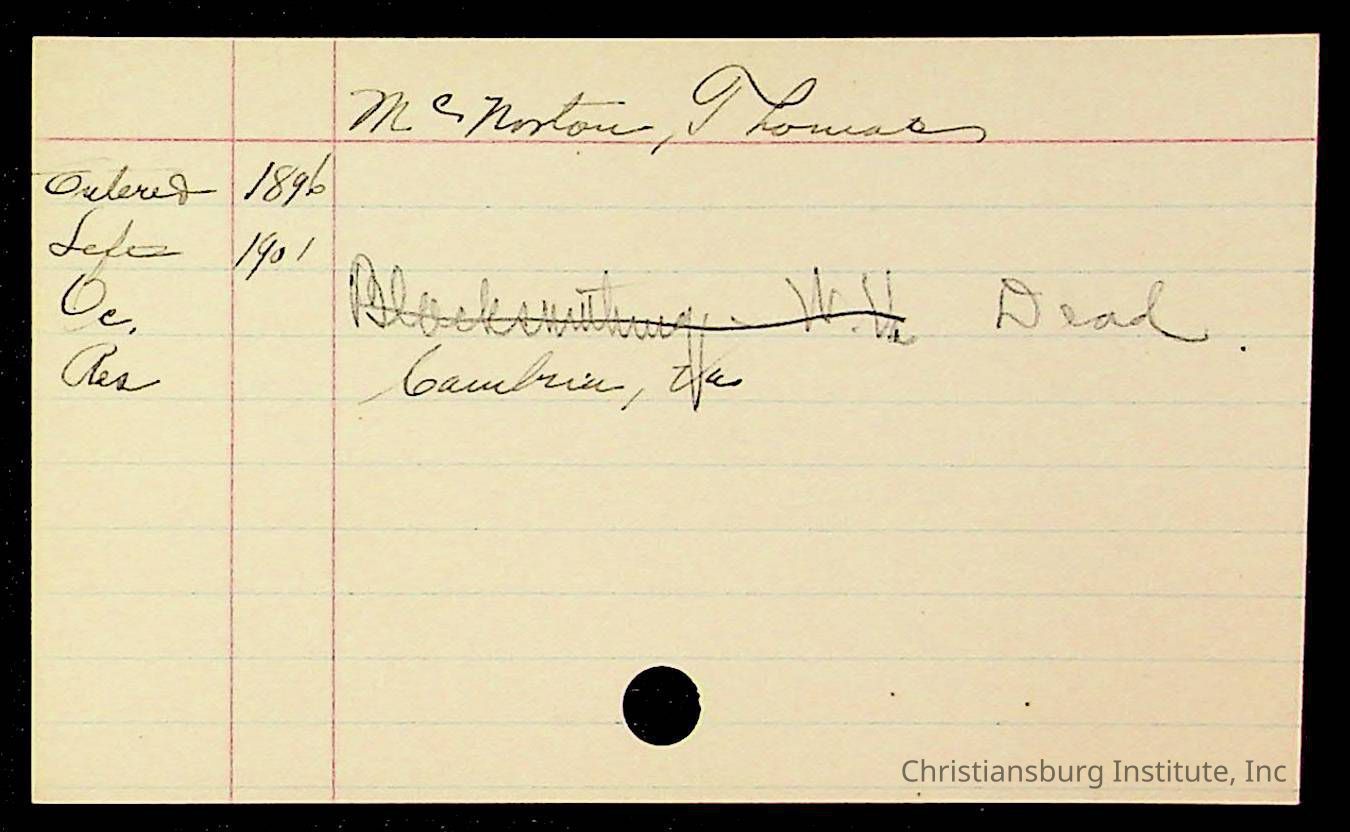 Mc Norton, Thomas
Entered 1896
Left 1901
Oc. Blacksmithing - W. Va Dead.
Res Cambria, Va
Christiansburg Institute, Inc